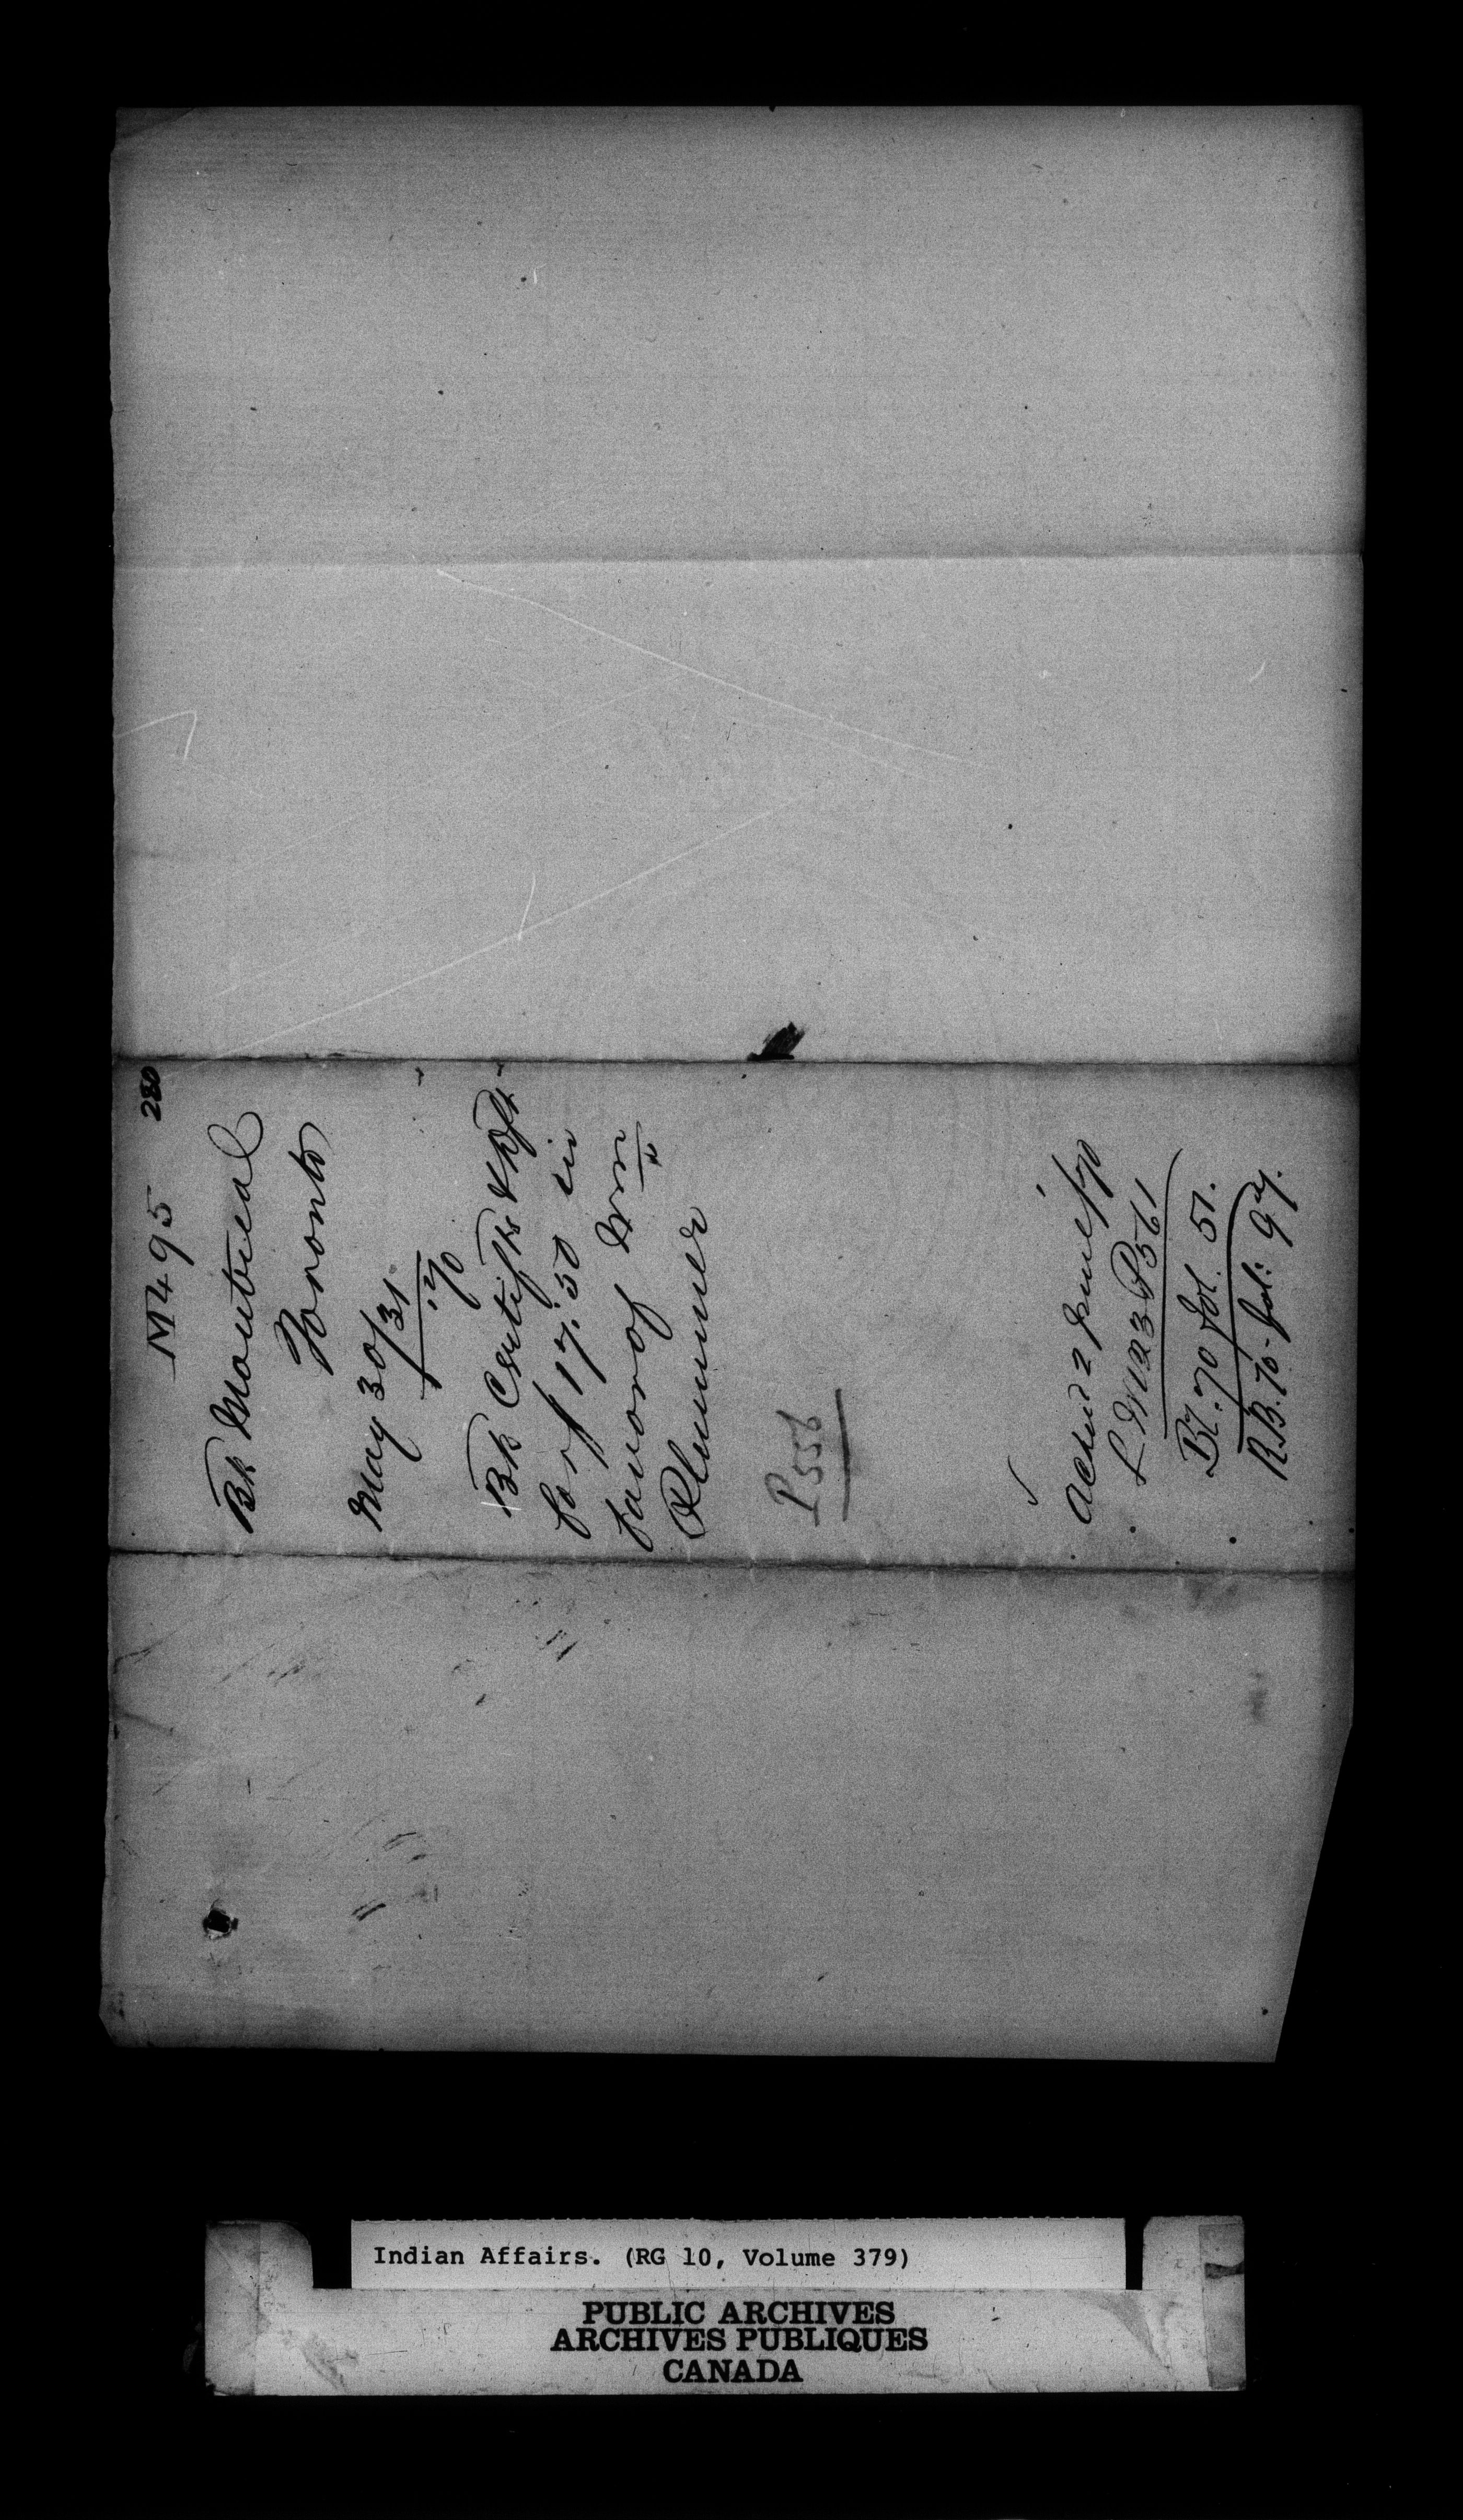 280
M495
Bk Montreal
Toronto
May 30/31
'70
Bk Certif Re
for $17.50 in
favor of Wm
Plummer
P556
Ackd 2 June/70
L M 123 P561
Bl. 70 fol. 51.
R.B. 70 - fol: 97.
Indian Affairs. (RG 10, Volume 379)
PUBLIC ARCHIVES
ARCHIVES PUBLIQUES
CANADA